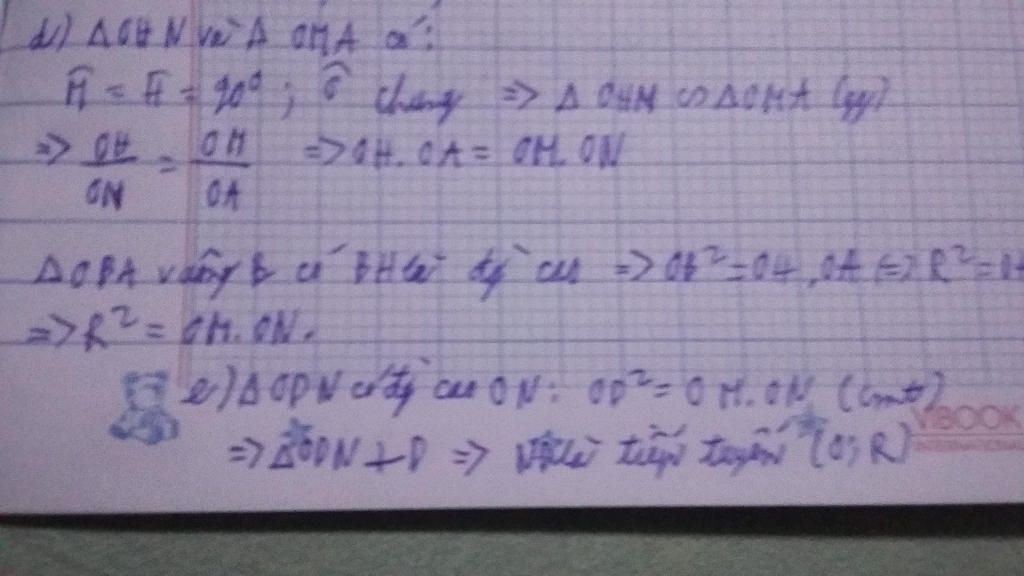 d) ΔOHN và Δ OMA có:
Ĥ = M̂ = 90°; Ô chung => Δ OHN ∽ ΔOMA (gg)
=> OH/ON = OM/OA => OH. OA = OM. ON
ΔOBA vuông B có BH là đg cao => OB² = OH . OA <=> R² = OH
=> R² = OM. ON.
e) ΔODN có đg cao ON: OD² = OM. ON (cmt)
=> ΔODN ⊥ D => là tiếp tuyến (O; R)
VIBOOK